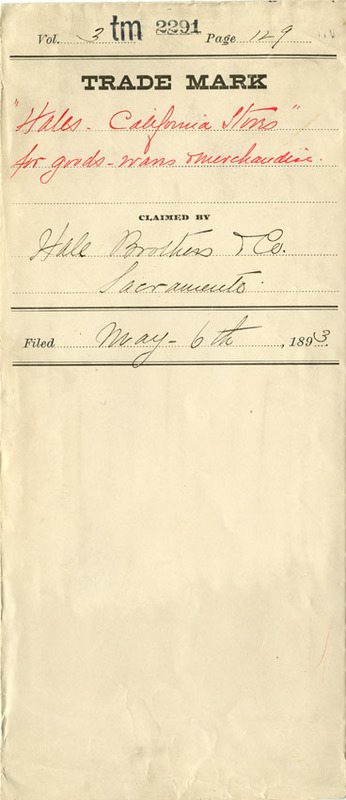 Vol. 3 tm 2291 Page 129
TRADE MARK
"Hales - California Stores"
for goods - wares & merchandise.
CLAIMED BY
Hale Brothers & Co.
Sacramento.
Filed May - 6th, 1893.